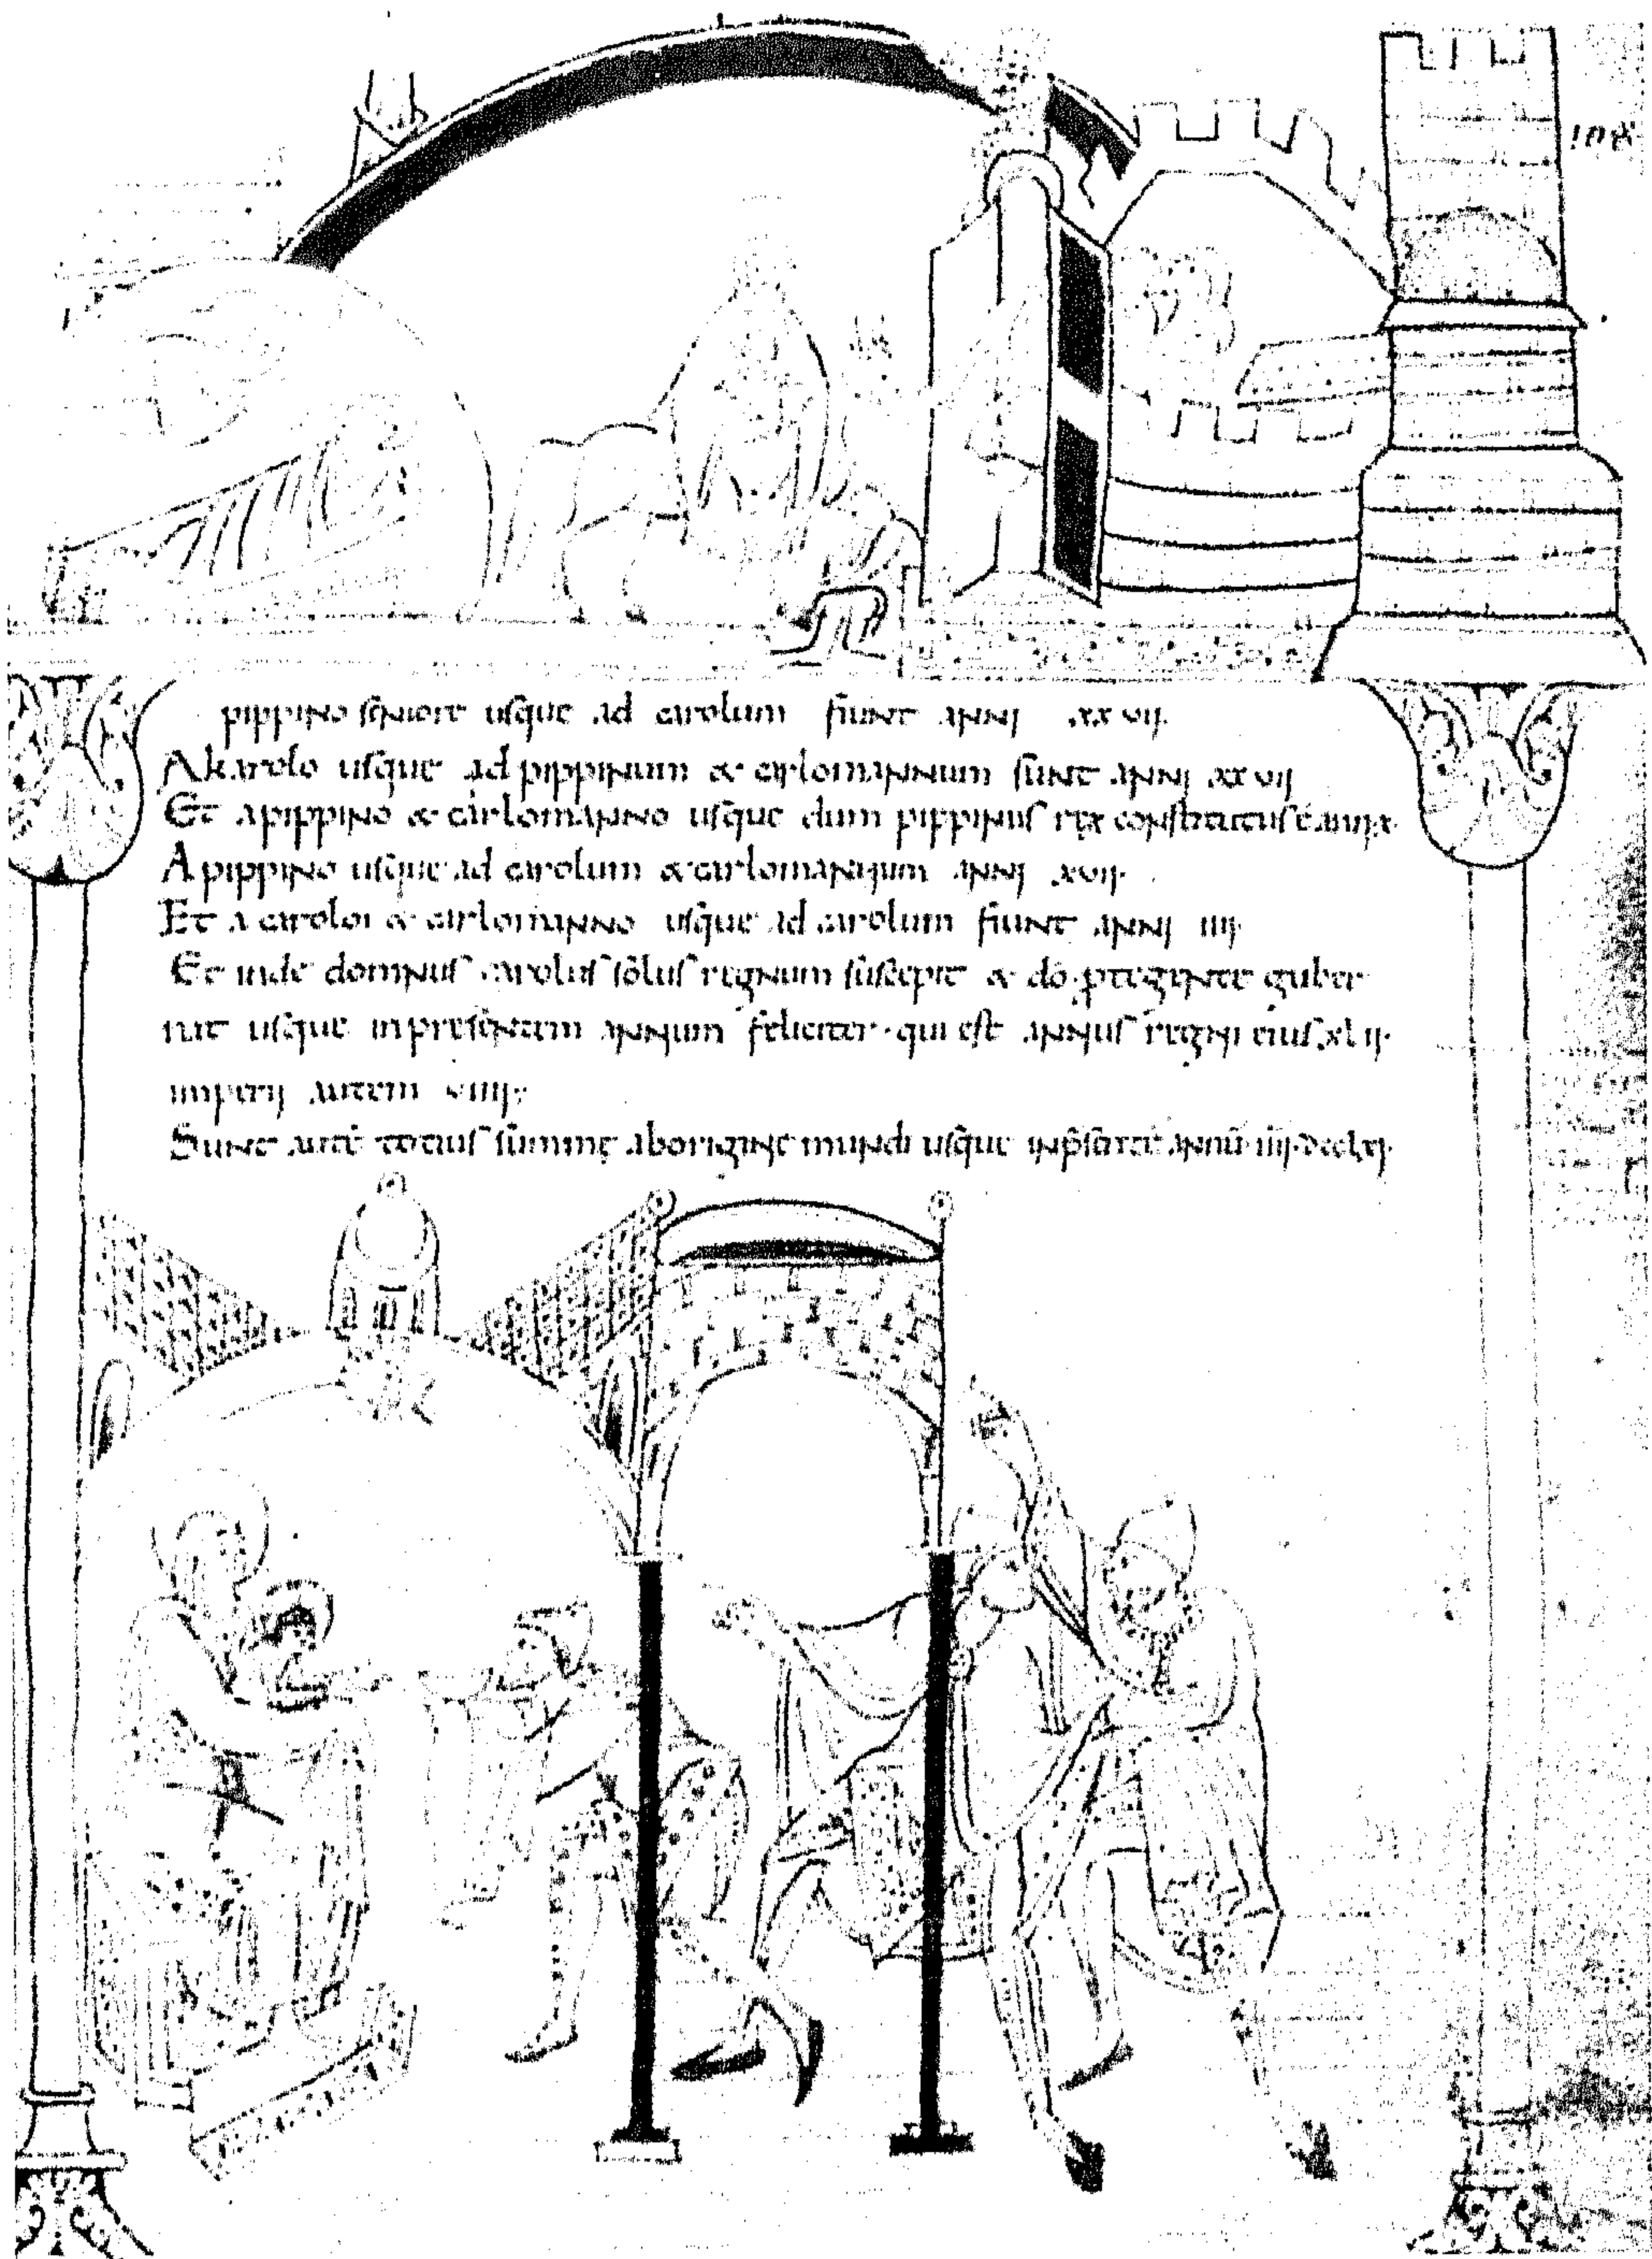 pippino seniore usque ad carolum fiunt anni xxvii.
A karolo usque ad pippinum & carlomannum sunt anni xxvii
Et a pippino & carlomanno usque dum pippinus rex constitutus ē anni x.
A pippino usque ad carolum & carlomannum anni xvii.
Et a carolo & carlomanno usque ad carolum fiunt anni iiii.
Et inde domnus carolus solus regnum suscepit & dō ptegente guber
nat usque in presentem annum feliciter · qui est annus regni eius xlii.
imperii autem viiii.
Sunt autē totius summe ab origine mundi usque in annū iiii.dcclxi.